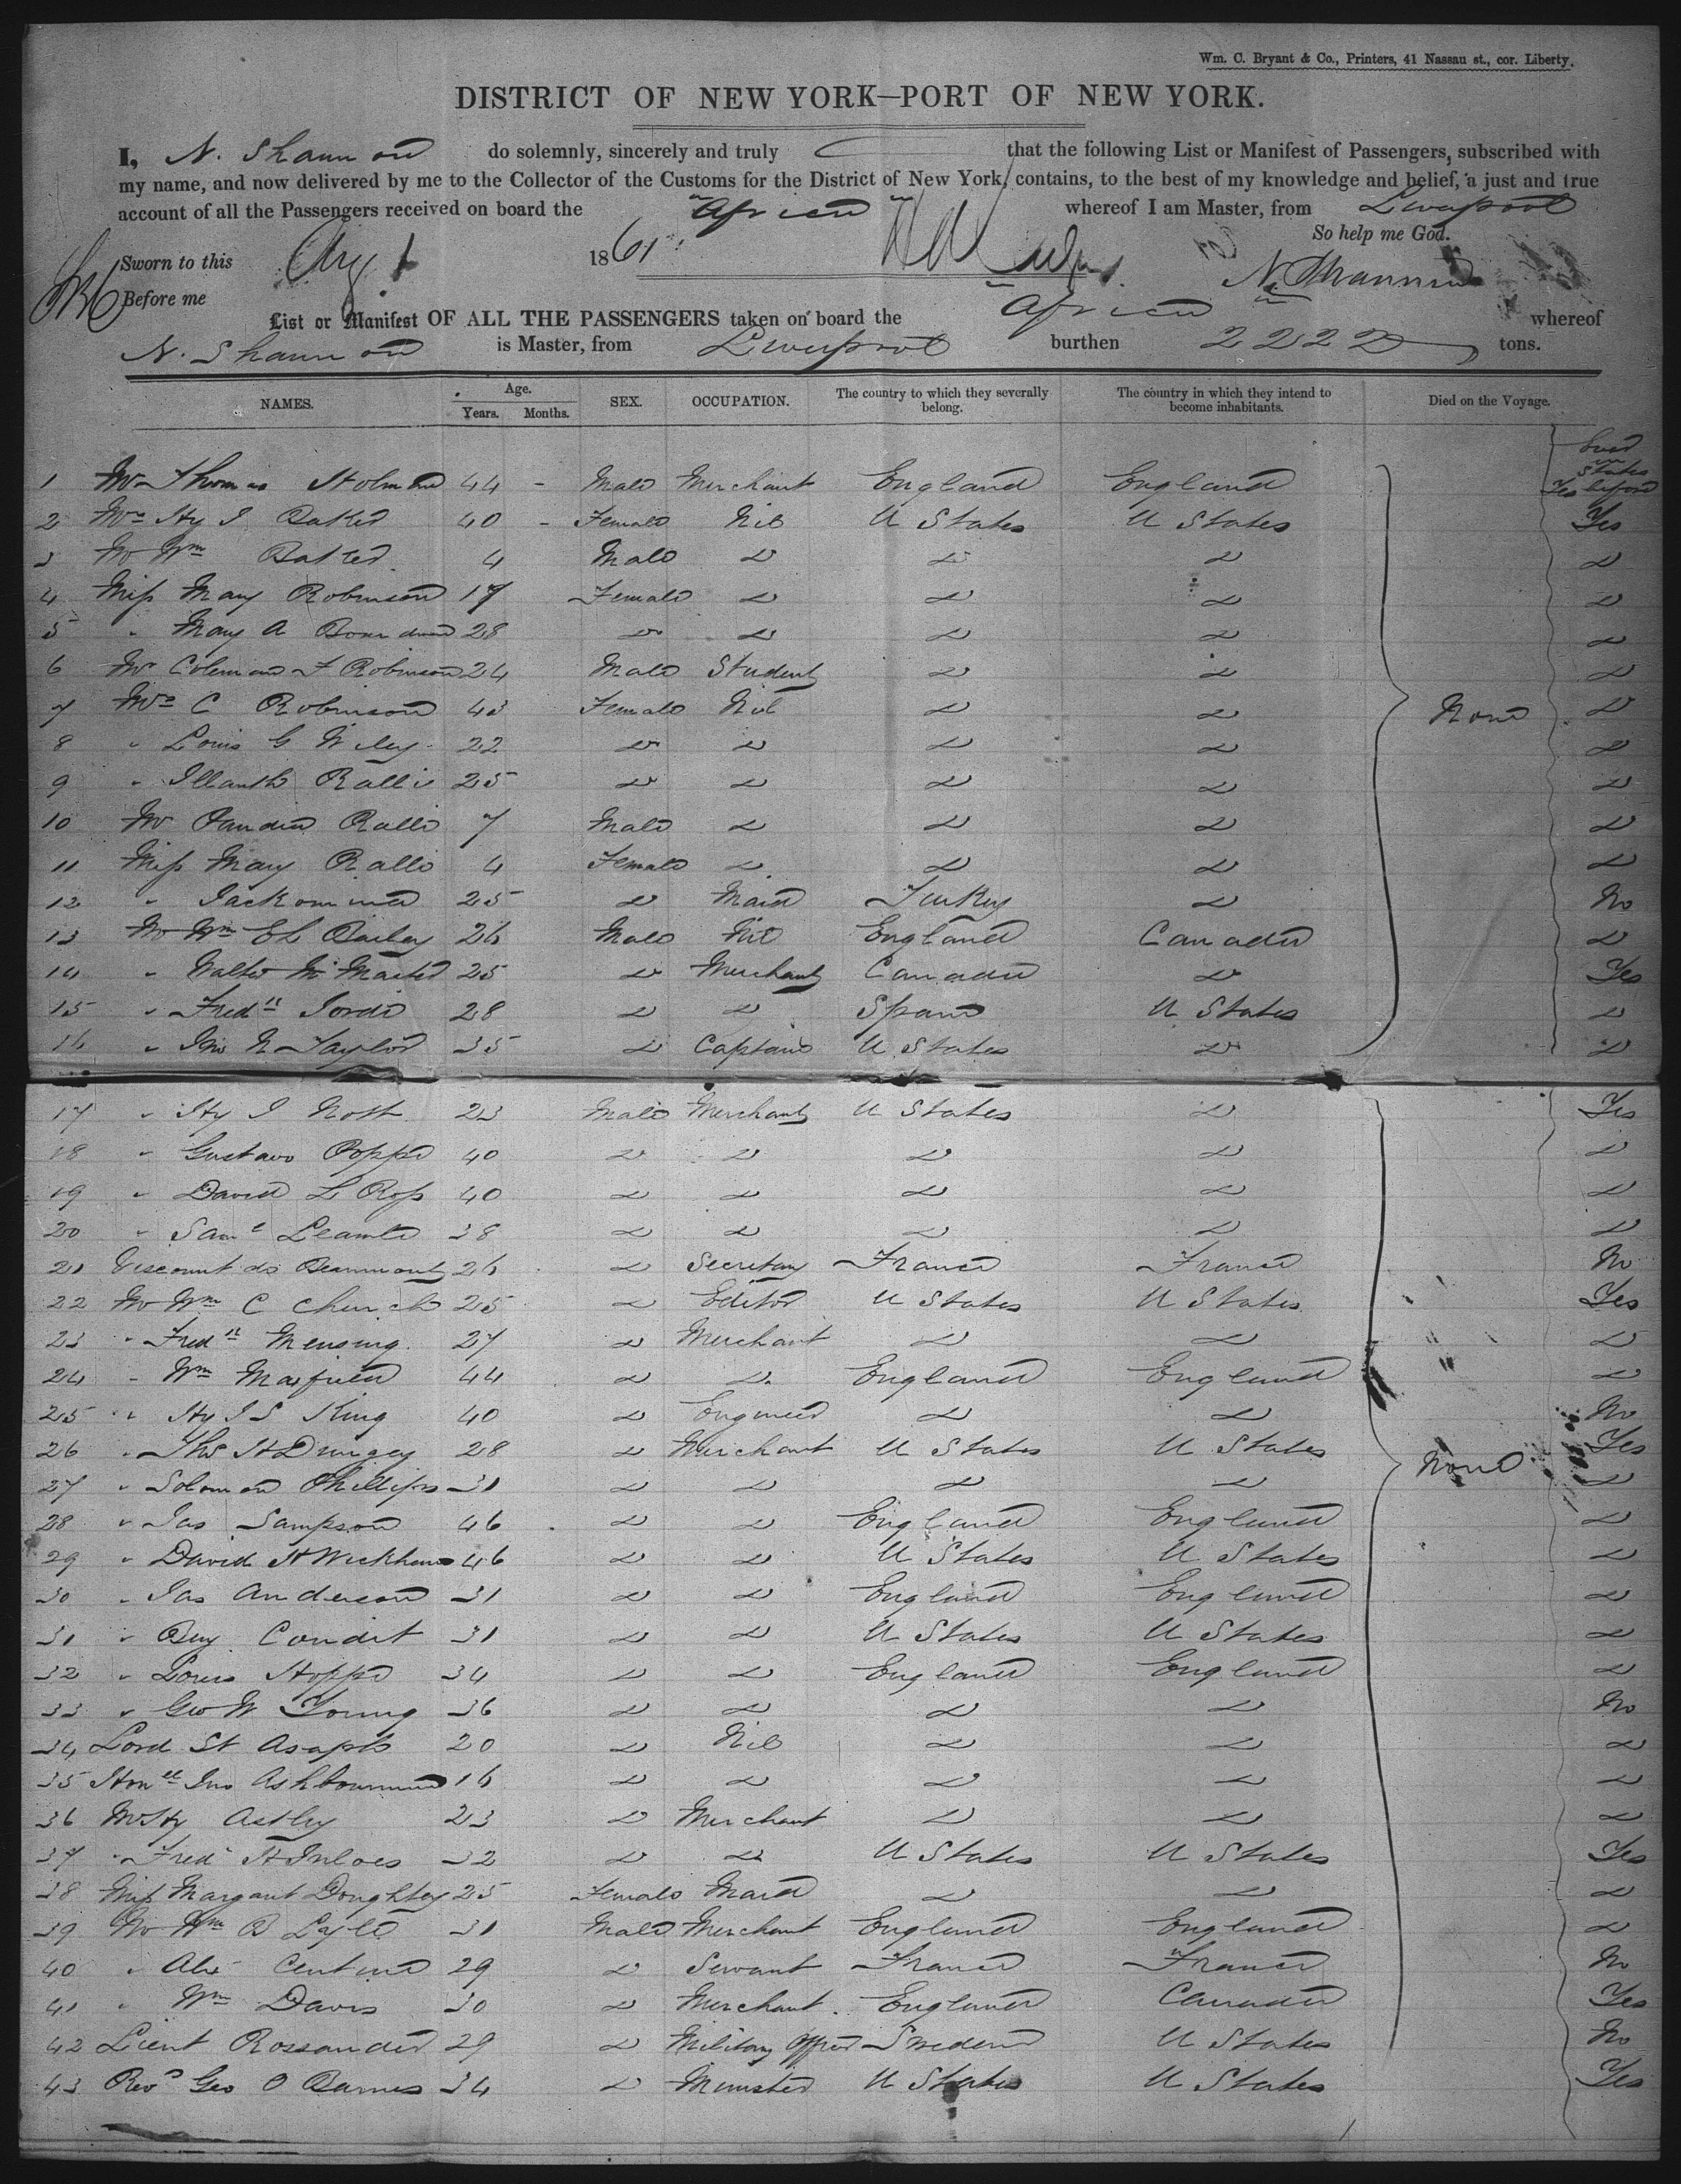 Wm. C. Bryant & Co., Printers, 41 Nassau st., cor. Liberty.
DISTRICT OF NEW YORK—PORT OF NEW YORK.
I, N. Shannon do solemnly, sincerely and truly that the following List or Manifest of Passengers, subscribed with
my name, and now delivered by me to the Collector of the Customs for the District of New York, contains, to the best of my knowledge and belief, a just and true
account of all the Passengers received on board the "Africa" whereof I am Master, from Liverpool
So help me God.
Sworn to this Aug 1 1861
N. Shannon
Before me
List or Manifest OF ALL THE PASSENGERS taken on board the "Africa" whereof
N. Shannon is Master, from Liverpool burthen 2222 tons.
NAMES. Age. Years. Months. SEX. OCCUPATION. The country to which they severally belong. The country in which they intend to become inhabitants. Died on the Voyage.
States before
1 Mr Thomas 44 - Male Merchant England England Yes
2 Mrs Hy J Baker 40 - Female Nil U States U States Yes
3 Mr Wm Baker 4 Male Do Do Do Do
4 Miss Mary Robinson 17 Female Do Do Do Do
5 " Mary A 28 Do Do Do Do Do
6 Mr Coleman F Robinson 24 Male Student Do Do Do
7 Mrs C Robinson 43 Female Nil Do Do None Do
8 " Louis G Wiley 22 Do Do Do Do Do
9 " Ralli 25 Do Do Do Do Do
10 Mr Ralli 7 Male Do Do Do Do
11 Miss Mary Ralli 4 Female Do Do Do Do
12 " 25 Do Maid Turkey Do No
13 Mr Wm E L Bailey 26 Male Nil England Canada Do
14 " Walter McMaster 25 Do Merchant Canada Do Yes
15 " Fredk 28 Do Do Spain U States Do
16 " Jno N Taylor 35 Do Captain U States Do Do
17 " Hy J Nott 23 Male Merchant U States Do Yes
18 " Gustavo Poppe 40 Do Do Do Do Do
19 " David L Ross 40 Do Do Do Do Do
20 " Saml 38 Do Do Do Do Do
21 Viscount de Beaumont 26 Do Secretary France France No
22 Mr Wm C Church 25 Do Editor U States U States Yes
23 " Fredk Mensing 27 Do Merchant Do Do Do
24 " Wm Maxfield 44 Do Do England England Do
25 " Hy J S King 40 Do Engineer Do Do No
26 " Thos H 28 Do Merchant U States U States Yes
27 " Solomon Phillips 31 Do Do Do Do None Do
28 " Jas Sampson 46 Do Do England England Do
29 " David H Wickham 46 Do Do U States U States Do
30 " Jas Anderson 31 Do Do England England Do
31 " Benj Condit 31 Do Do U States U States Do
32 " Louis Hoppe 34 Do Do England England Do
33 " Geo W Young 36 Do Do Do Do No
34 Lord St Asaph 20 Do Nil Do Do Do
35 Honble Jno Ashburnham 16 Do Do Do Do Do
36 Mr Hy Astley 23 Do Merchant Do Do Do
37 " Fred H Inloes 32 Do Do U States U States Yes
38 Miss Margaret Doughtey 25 Female Maid Do Do Do
39 Mr Wm B 31 Male Merchant England England Do
40 " Alex 29 Do Servant France France No
41 " Wm Davis 30 Do Merchant England Canada Yes
42 Lieut Rossander 29 Do Military Officer Sweden U States No
43 Revd Geo O Barnes 34 Do Minister U States U States Yes